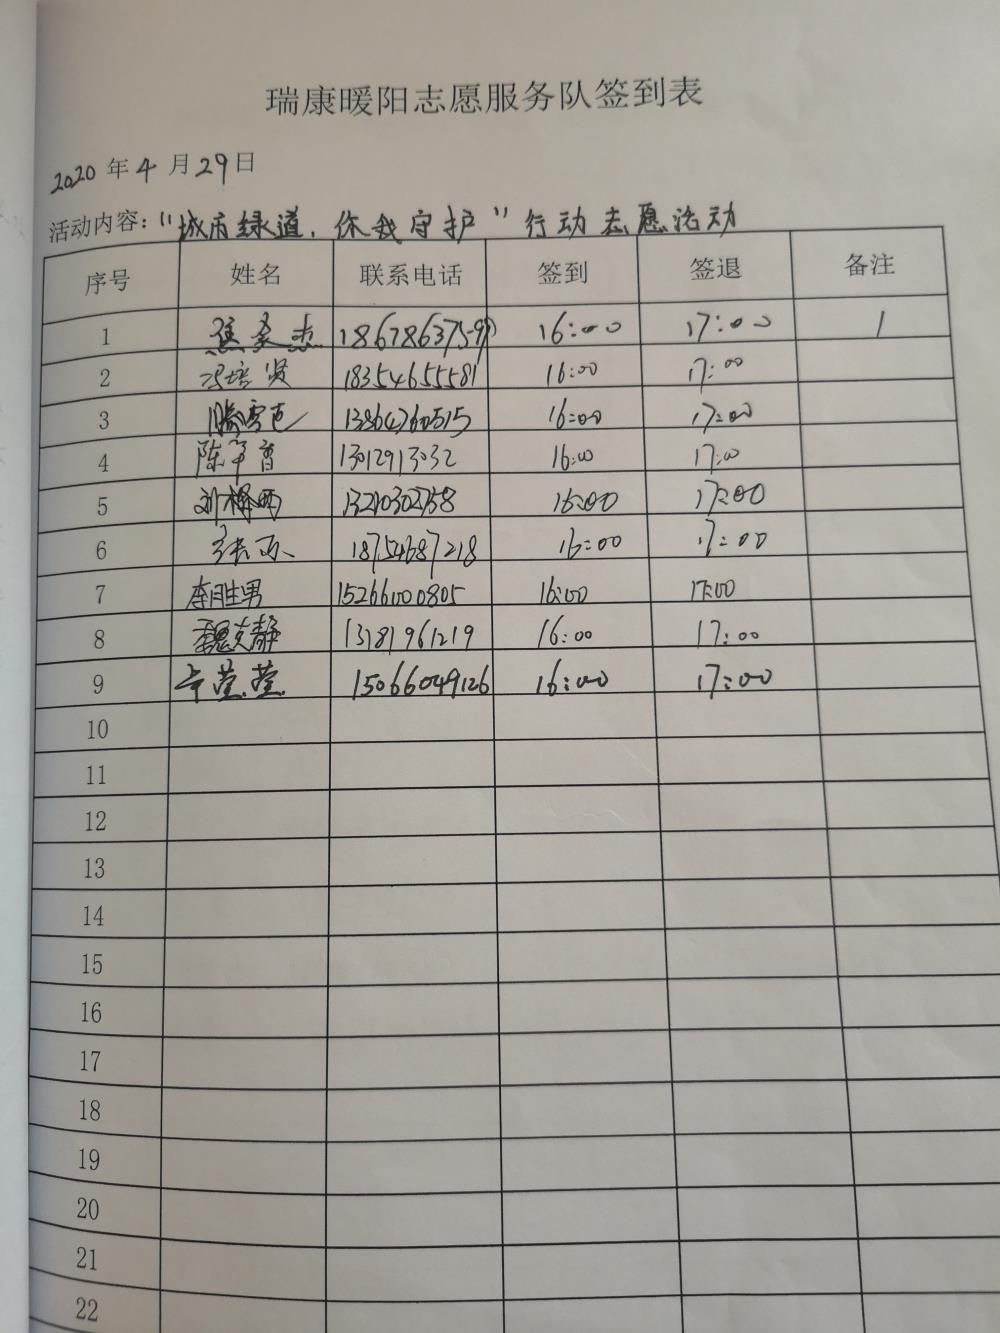 瑞康暖阳志愿服务队签到表
2020年4月29日
活动内容："城市绿道，你我守护"行动志愿活动
序号 姓名 联系电话 签到 签退 备注
1 16:00 17:00 1
2 冯培贤 18354655581 16:00 17:00
3 13864760515 16:00 17:00
4 陈 13012913032 16:00 17:00
5 刘 13210302758 16:00 17:00
6 18754687218 16:00 17:00
7 李胜男 15266000805 16:00 17:00
8 魏文静 13181961219 16:00 17:00
9 莹莹 15066049126 16:00 17:00
10
11
12
13
14
15
16
17
18
19
20
21
22